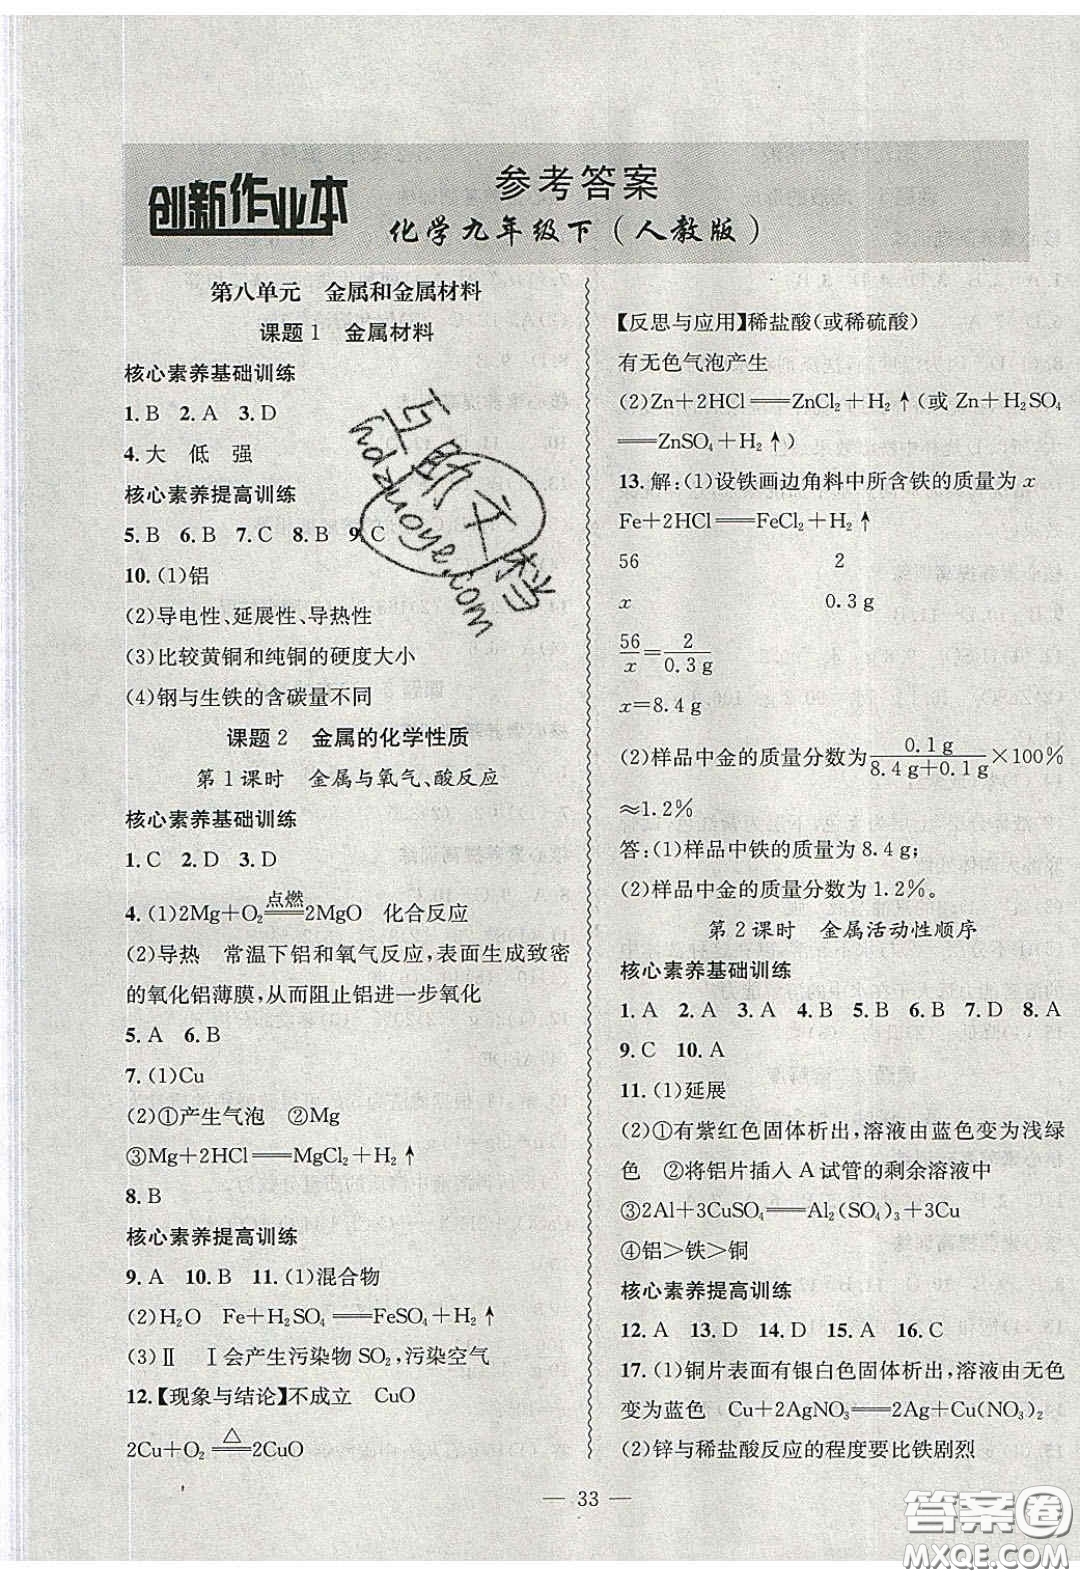 创新作业本
参考答案
化学九年级下（人教版）
第八单元　金属和金属材料
课题1　金属材料
核心素养基础训练
1. B　2. A　3. D
4. 大　低　强
核心素养提高训练
5. B　6. B　7. C　8. B　9. C
10. (1)铝
(2)导电性、延展性、导热性
(3)比较黄铜和纯铜的硬度大小
(4)钢与生铁的含碳量不同
课题2　金属的化学性质
第1课时　金属与氧气、酸反应
核心素养基础训练
1. C　2. D　3. D
4. (1)2Mg+O₂ 点燃══ 2MgO　化合反应
(2)导热　常温下铝和氧气反应，表面生成致密
的氧化铝薄膜，从而阻止铝进一步氧化
5. A　6. B
7. (1)Cu
(2)①产生气泡　②Mg
③Mg+2HCl══MgCl₂+H₂↑
8. B
核心素养提高训练
9. A　10. B　11. (1)混合物
(2)H₂O　Fe+H₂SO₄══FeSO₄+H₂↑
(3)Ⅱ　Ⅰ会产生污染物SO₂，污染空气
12.【现象与结论】不成立　CuO
2Cu+O₂ △══ 2CuO
【反思与应用】稀盐酸（或稀硫酸）
有无色气泡产生
(2)Zn+2HCl══ZnCl₂+H₂↑(或 Zn+H₂SO₄
══ZnSO₄+H₂↑)
13. 解：(1)设铁画边角料中所含铁的质量为 x
Fe+2HCl══FeCl₂+H₂↑
56　2
x　0.3 g
56/x=2/0.3 g
x=8.4 g
(2)样品中金的质量分数为 0.1 g/(8.4 g+0.1 g)×100%
≈1.2%
答：(1)样品中铁的质量为 8.4 g；
(2)样品中金的质量分数为 1.2%。
第2课时　金属活动性顺序
核心素养基础训练
1. A　2. A　3. A　4. B　5. B　6. B　7. D　8. A
9. C　10. A
11. (1)延展
(2)①有紫红色固体析出，溶液由蓝色变为浅绿
色　②将铝片插入 A 试管的剩余溶液中
③2Al+3CuSO₄══Al₂(SO₄)₃+3Cu
④铝>铁>铜
核心素养提高训练
12. A　13. D　14. D　15. A　16. C
17. (1)铜片表面有银白色固体析出，溶液由无色
变为蓝色　Cu+2AgNO₃══2Ag+Cu(NO₃)₂
(2)锌与稀盐酸反应的程度要比铁剧烈
— 33 —
互助文档
hdzuoye.com
答案圈
MXQE.COM